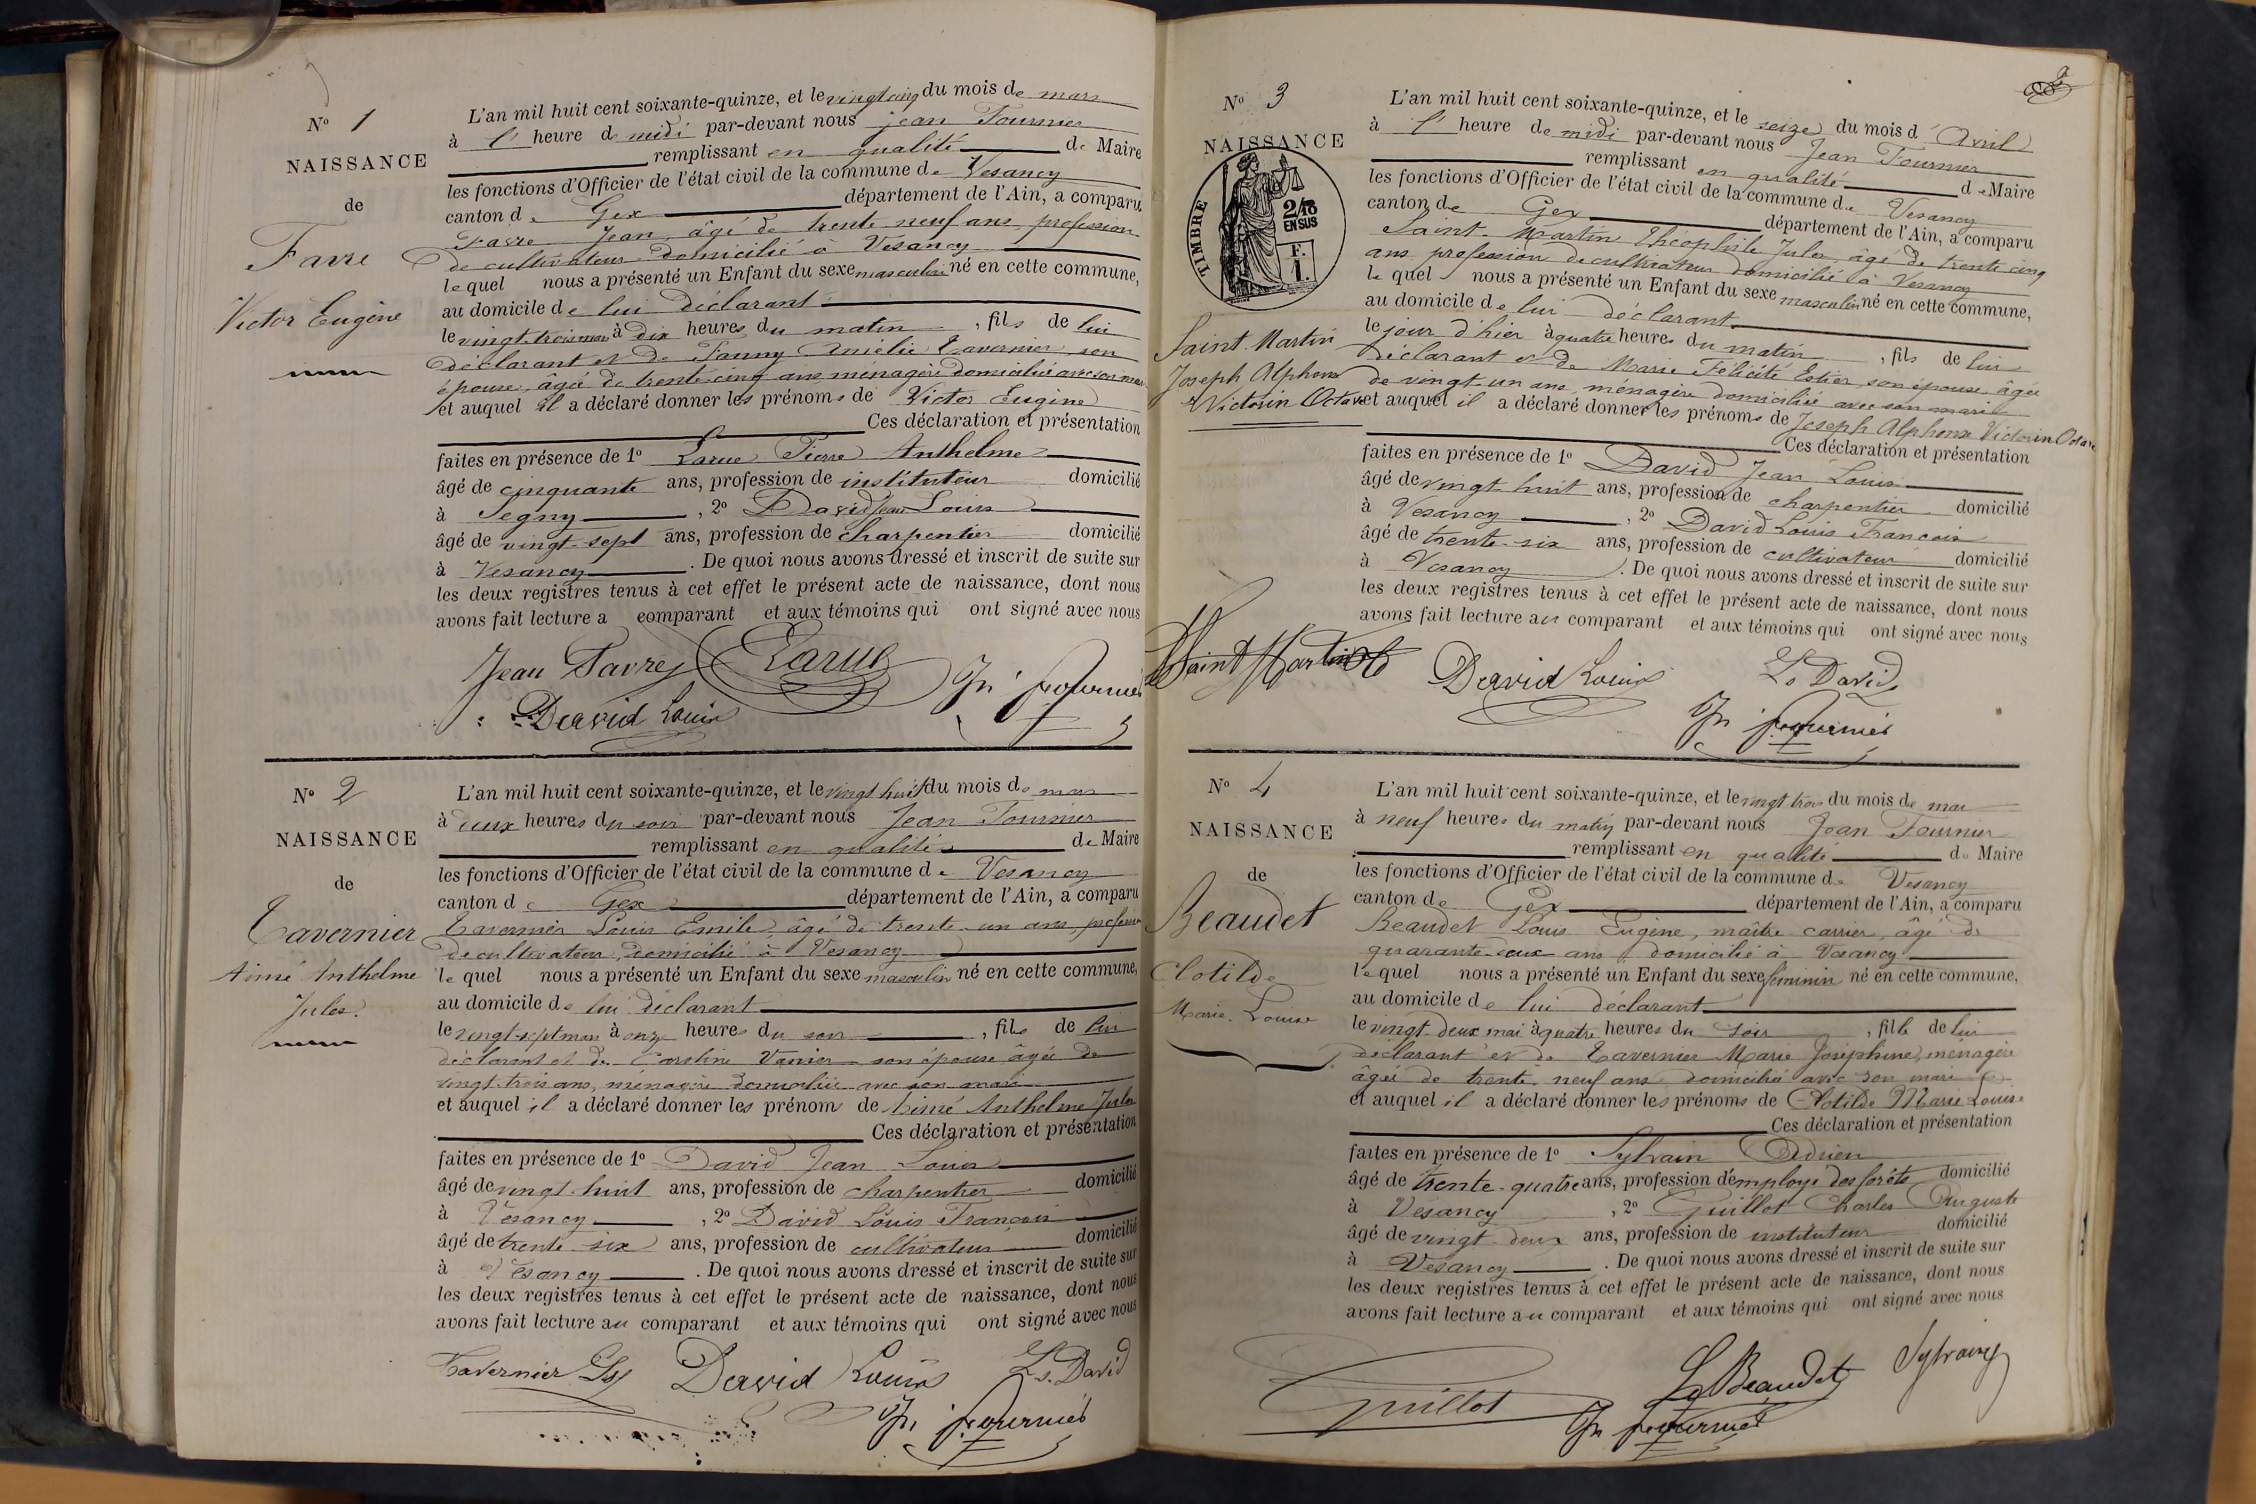 N° 1
NAISSANCE
de
Favre
Victor Eugène
L'an mil huit cent soixante-quinze, et le vingt cinq du mois de mars
à l' heure de midi par-devant nous jean Fournier
remplissant en qualité de Maire
les fonctions d'Officier de l'état civil de la commune de Vesancy
canton de Gex département de l'Ain, a comparu
Favre Jean, âgé de trente neuf ans, profession
de cultivateur domicilié à Vesancy
lequel nous a présenté un Enfant du sexe masculin né en cette commune,
au domicile de lui déclarant
le vingt-trois mars à dix heures du matin, fils de lui
déclarant et de Fanny Amélie Tavernier son
épouse, agée de trente-cinq ans ménagère domiciliée avec son mari
et auquel il a déclaré donner les prénoms de Victor Eugène
Ces déclaration et présentation
faites en présence de 1° Larue Pierre Anthelme
âgé de cinquante ans, profession de instituteur domicilié
à Segny, 2° David Jean Louis
âgé de vingt-sept ans, profession de charpentier domicilié
à Vesancy. De quoi nous avons dressé et inscrit de suite sur
les deux registres tenus à cet effet le présent acte de naissance, dont nous
avons fait lecture a comparant et aux témoins qui ont signé avec nous
Jean Favre Larue Jn fournier
David Louis
N° 2
NAISSANCE
de
Tavernier
Aimé Anthelme
Jules.
L'an mil huit cent soixante-quinze, et le vingt huit du mois de mars
à deux heures du soir par-devant nous Jean Fournier
remplissant en qualité de Maire
les fonctions d'Officier de l'état civil de la commune de Vesancy
canton de Gex département de l'Ain, a comparu
Tavernier Louis Emile, âgé de trente-un ans, profession
de cultivateur, domicilié à Vesancy
lequel nous a présenté un Enfant du sexe masculin né en cette commune,
au domicile de lui déclarant
le vingt-sept mars à onze heures du soir, fils de lui
déclarant et de Caroline Vanier son épouse âgée de
vingt-trois ans, ménagère domiciliée avec son mari
et auquel il a déclaré donner les prénoms de Aimé Anthelme Jules
Ces déclaration et présentation
faites en présence de 1° David Jean Louis
âgé de vingt-huit ans, profession de charpentier domicilié
à Vesancy, 2° David Louis François
âgé de trente six ans, profession de cultivateur domicilié
à Vesancy. De quoi nous avons dressé et inscrit de suite sur
les deux registres tenus à cet effet le présent acte de naissance, dont nous
avons fait lecture au comparant et aux témoins qui ont signé avec nous
Tavernier David Louis Ls. David
Jn fournier
N° 3
NAISSANCE
TIMBRE
2/10
EN SUS
F.
1.
Saint-Martin
Joseph Alphonse
Victorin Octave
L'an mil huit cent soixante-quinze, et le seize du mois d'Avril
à l' heure de midi par-devant nous Jean Fournier
remplissant en qualité de Maire
les fonctions d'Officier de l'état civil de la commune de Vesancy
canton de Gex département de l'Ain, a comparu
Saint-Martin Théophile Jules, âgé de trente cinq
ans profession de cultivateur domicilié à Vesancy
lequel nous a présenté un Enfant du sexe masculin né en cette commune,
au domicile de lui déclarant
le jour d'hier à quatre heures du matin, fils de lui
déclarant et de Marie Félicité Estier, son épouse, âgée
de vingt-un ans ménagère domiciliée avec son mari
et auquel il a déclaré donner les prénoms de Joseph Alphonse Victorin Octave
Ces déclaration et présentation
faites en présence de 1° David Jean Louis
âgé de vingt-huit ans, profession de charpentier domicilié
à Vesancy, 2° David Louis François
âgé de trente-six ans, profession de cultivateur domicilié
à Vesancy. De quoi nous avons dressé et inscrit de suite sur
les deux registres tenus à cet effet le présent acte de naissance, dont nous
avons fait lecture au comparant et aux témoins qui ont signé avec nous
Saint Martin David Louis Ls David
Jn fournier
N° 4
NAISSANCE
de
Beaudet
Clotilde
Marie. Louise
L'an mil huit cent soixante-quinze, et le vingt trois du mois de mai
à neuf heures du matin par-devant nous Jean Fournier
remplissant en qualité de Maire
les fonctions d'Officier de l'état civil de la commune de Vesancy
canton de Gex département de l'Ain, a comparu
Beaudet Louis Eugène, maître carrier, âgé de
quarante-deux ans domicilié à Vesancy
lequel nous a présenté un Enfant du sexe féminin né en cette commune,
au domicile de lui déclarant
le vingt-deux mai à quatre heures du soir, fille de lui
déclarant et de Tavernier Marie Joséphine, ménagère
âgée de trente-neuf ans domiciliée avec son mari
et auquel il a déclaré donner les prénoms de Clotilde Marie Louise
Ces déclaration et présentation
faites en présence de 1° Sylvain Adrien
âgé de trente-quatre ans, profession d'employé des forêts domicilié
à Vesancy, 2° Guillot Charles Auguste
âgé de vingt-deux ans, profession de instituteur domicilié
à Vesancy. De quoi nous avons dressé et inscrit de suite sur
les deux registres tenus à cet effet le présent acte de naissance, dont nous
avons fait lecture au comparant et aux témoins qui ont signé avec nous
Guillot Beaudet Sylvain
Jn fournier